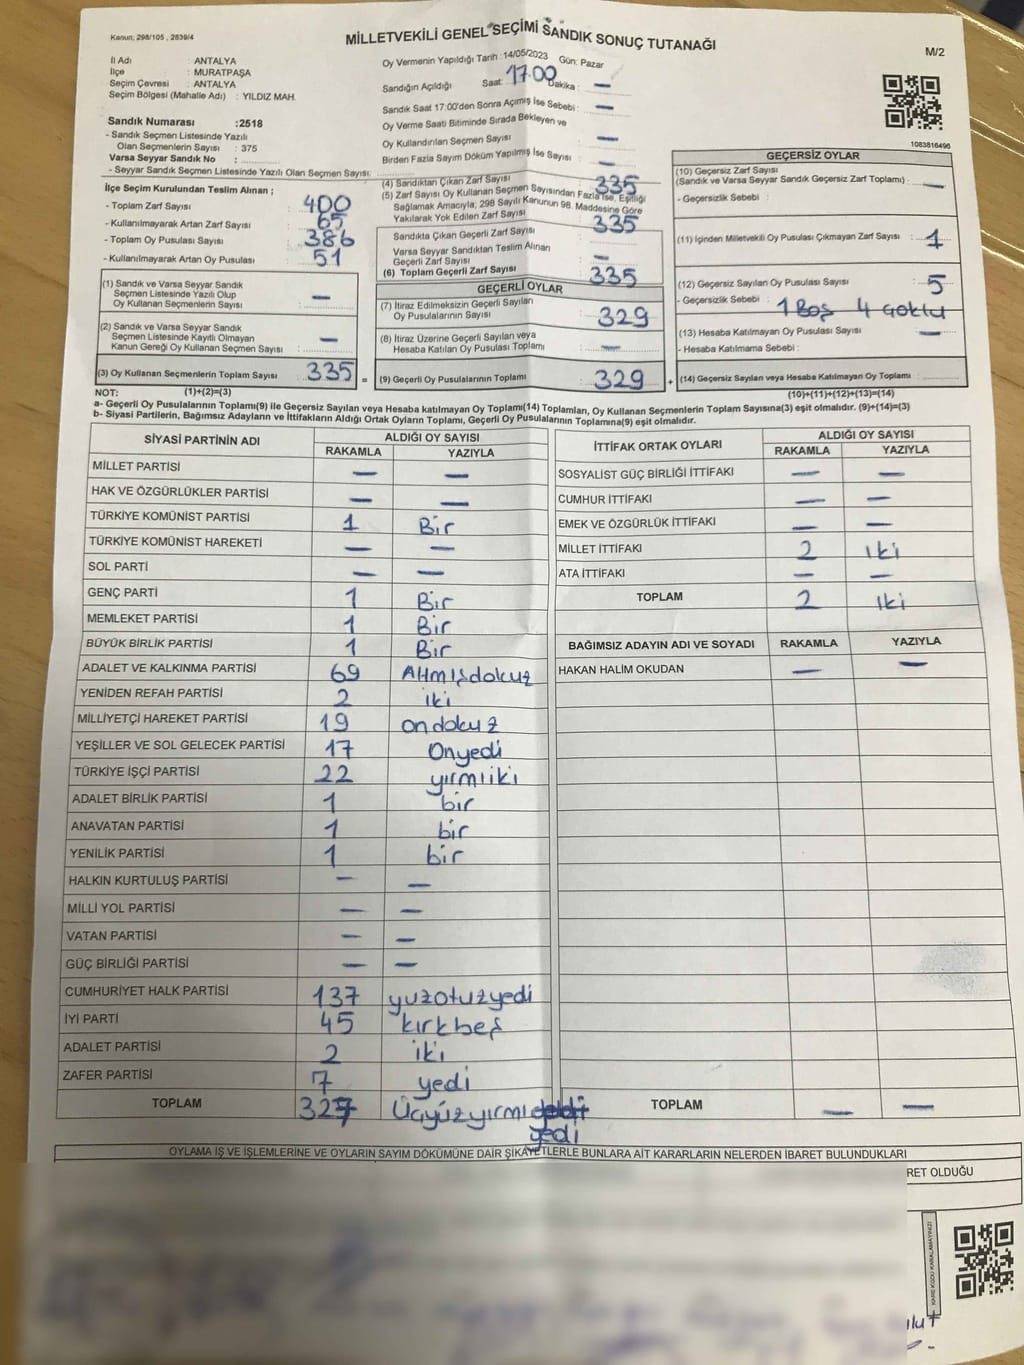 Kanun; 298/105 , 2839/4
MİLLETVEKİLİ GENEL SEÇİMİ SANDIK SONUÇ TUTANAĞI
M/2
İl Adı : ANTALYA
İlçe : MURATPAŞA
Seçim Çevresi : ANTALYA
Seçim Bölgesi (Mahalle Adı) : YILDIZ MAH.
Oy Vermenin Yapıldığı Tarih : 14/05/2023 Gün: Pazar
Sandığın Açıldığı Saat: 17.00 Dakika : —
Sandık Saat 17:00'den Sonra Açımış İse Sebebi : —
Oy Verme Saati Bitiminde Sırada Bekleyen ve
Oy Kullandırılan Seçmen Sayısı : —
Birden Fazla Sayım Döküm Yapılmış İse Sayısı : —
1083816496
Sandık Numarası :2518
- Sandık Seçmen Listesinde Yazılı
Olan Seçmenlerin Sayısı : 375
Varsa Seyyar Sandık No :
- Seyyar Sandık Seçmen Listesinde Yazılı Olan Seçmen Sayısı:
İlçe Seçim Kurulundan Teslim Alınan ;
- Toplam Zarf Sayısı : 400
- Kullanılmayarak Artan Zarf Sayısı : 65
- Toplam Oy Pusulası Sayısı : 386
- Kullanılmayarak Artan Oy Pusulası : 51
(1) Sandık ve Varsa Seyyar Sandık
Seçmen Listesinde Yazılı Olup
Oy Kullanan Seçmenlerin Sayısı : —
(2) Sandık ve Varsa Seyyar Sandık
Seçmen Listesinde Kayıtlı Olmayan
Kanun Gereği Oy Kullanan Seçmen Sayısı : —
(3) Oy Kullanan Seçmenlerin Toplam Sayısı : 335 =
(4) Sandıktan Çıkan Zarf Sayısı : 335
(5) Zarf Sayısı Oy Kullanan Seçmen Sayısından Fazla İse, Eşitliği
Sağlamak Amacıyla; 298 Sayılı Kanunun 98. Maddesine Göre
Yakılarak Yok Edilen Zarf Sayısı :
Sandıkta Çıkan Geçerli Zarf Sayısı : 335
Varsa Seyyar Sandıktan Teslim Alınan
Geçerli Zarf Sayısı : —
(6) Toplam Geçerli Zarf Sayısı : 335
GEÇERLİ OYLAR
(7) İtiraz Edilmeksizin Geçerli Sayılan
Oy Pusulalarının Sayısı : 329
(8) İtiraz Üzerine Geçerli Sayılan veya
Hesaba Katılan Oy Pusulası Toplamı : —
(9) Geçerli Oy Pusulalarının Toplamı : 329 +
GEÇERSİZ OYLAR
(10) Geçersiz Zarf Sayısı
(Sandık ve Varsa Seyyar Sandık Geçersiz Zarf Toplamı) : —
- Geçersizlik Sebebi :
(11) İçinden Milletvekili Oy Pusulası Çıkmayan Zarf Sayısı : 1
(12) Geçersiz Sayılan Oy Pusulası Sayısı : 5
- Geçersizlik Sebebi : 1 Boş 4 Çoklu
(13) Hesaba Katılmayan Oy Pusulası Sayısı : —
- Hesaba Katılmama Sebebi :
(14) Geçersiz Sayılan veya Hesaba Katılmayan Oy Toplamı :
NOT: (1)+(2)=(3) (10)+(11)+(12)+(13)=(14)
a- Geçerli Oy Pusulalarının Toplamı(9) ile Geçersiz Sayılan veya Hesaba katılmayan Oy Toplamı(14) Toplamları, Oy Kullanan Seçmenlerin Toplam Sayısına(3) eşit olmalıdır. (9)+(14)=(3)
b- Siyasi Partilerin, Bağımsız Adayların ve İttifakların Aldığı Ortak Oyların Toplamı, Geçerli Oy Pusulalarının Toplamına(9) eşit olmalıdır.
SİYASİ PARTİNİN ADI ALDIĞI OY SAYISI
RAKAMLA YAZIYLA
MİLLET PARTİSİ — —
HAK VE ÖZGÜRLÜKLER PARTİSİ — —
TÜRKİYE KOMÜNİST PARTİSİ 1 Bir
TÜRKİYE KOMÜNİST HAREKETİ — —
SOL PARTİ — —
GENÇ PARTİ 1 Bir
MEMLEKET PARTİSİ 1 Bir
BÜYÜK BİRLİK PARTİSİ 1 Bir
ADALET VE KALKINMA PARTİSİ 69 Altmışdokuz
YENİDEN REFAH PARTİSİ 2 iki
MİLLİYETÇİ HAREKET PARTİSİ 19 ondokuz
YEŞİLLER VE SOL GELECEK PARTİSİ 17 Onyedi
TÜRKİYE İŞÇİ PARTİSİ 22 yırmiiki
ADALET BİRLİK PARTİSİ 1 bir
ANAVATAN PARTİSİ 1 bir
YENİLİK PARTİSİ 1 bir
HALKIN KURTULUŞ PARTİSİ — —
MİLLİ YOL PARTİSİ — —
VATAN PARTİSİ — —
GÜÇ BİRLİĞİ PARTİSİ — —
CUMHURİYET HALK PARTİSİ 137 yuzotuzyedi
İYİ PARTİ 45 kırkbeş
ADALET PARTİSİ 2 iki
ZAFER PARTİSİ 7 yedi
TOPLAM 327 Üçyüzyırmi
yedi
İTTİFAK ORTAK OYLARI ALDIĞI OY SAYISI
RAKAMLA YAZIYLA
SOSYALİST GÜÇ BİRLİĞİ İTTİFAKI — —
CUMHUR İTTİFAKI — —
EMEK VE ÖZGÜRLÜK İTTİFAKI — —
MİLLET İTTİFAKI 2 iki
ATA İTTİFAKI — —
TOPLAM 2 iki
BAĞIMSIZ ADAYIN ADI VE SOYADI RAKAMLA YAZIYLA
HAKAN HALİM OKUDAN — —
TOPLAM — —
OYLAMA İŞ VE İŞLEMLERİNE VE OYLARIN SAYIM DÖKÜMÜNE DAİR ŞİKAYETLERLE BUNLARA AİT KARARLARIN NELERDEN İBARET BULUNDUKLARI
RET OLDUĞU
KARE KODU KARALAMAYINIZ!